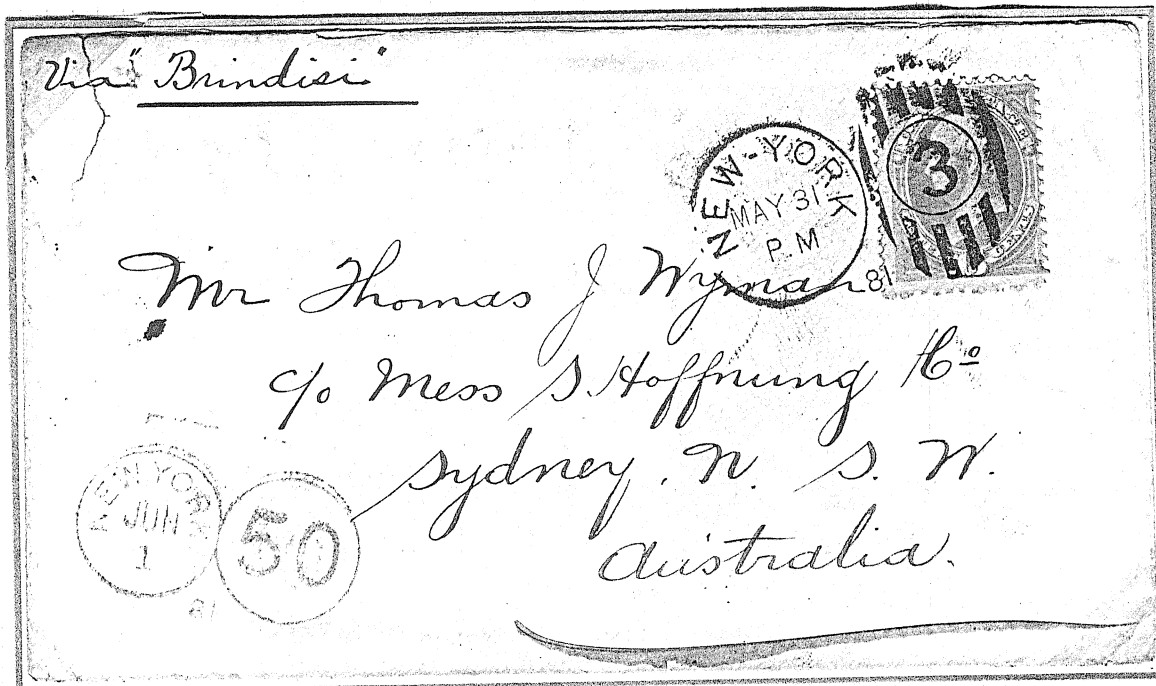 Via "Brindisi"
NEW-YORK
MAY 31
P.M
81
3
Mr Thomas J Wyman
c/o Mess S. Hoffnung & Co
Sydney. N. S. W.
Australia.
NEW YORK
JUN
1
81
50